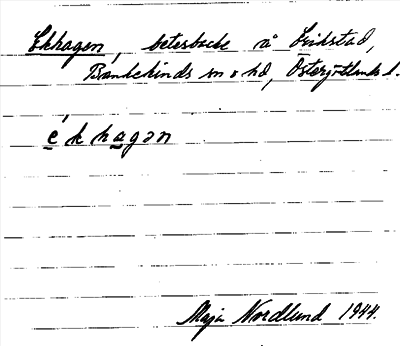 Ekhagen, betesbacke å Erikstad,
Bankekinds sn o hd, Östergötlands l.
ékhagən
Maja Nordlund 1944.